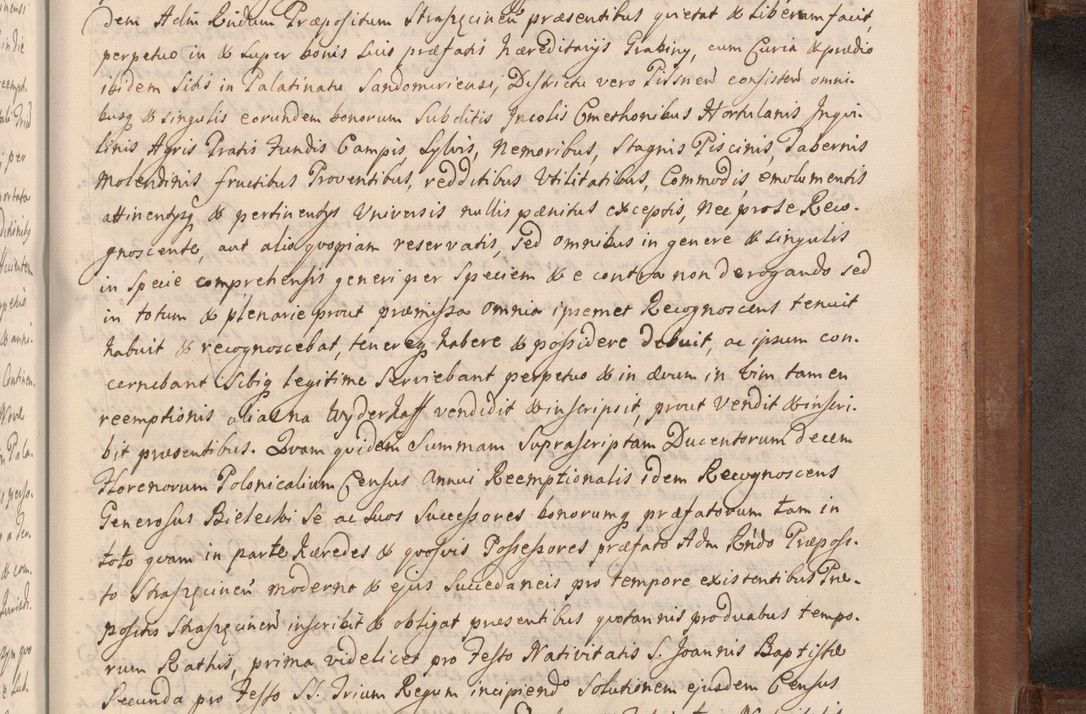 dem Adm Rndum Præpositum Straszęcinen præsentibus quietat & Liberum facit,
perpetuo in & super bonis suis præfatis hæreditarijs Grabiny, cum Curia & prædio
ibidem Sitis in Palatinatu Sandomiriensi, Districtu vero Pilsnen consisten omni-
busq & singulis eorundem bonorum Subditis Incolis Cmethonibus Hortulanis Inqui-
linis Agris Pratis Fundis Campis Sylvis, Nemoribus, Stagnis Piscinis, Tabernis
Molendinis fructibus Proventibus, redditibus Utilitatibus, Commodis, emolumentis
attinentysq & pertinentys Universis nullis pænitus exceptis, Nec pro se Reco-
gnoscente, aut alio quopiam reservatis, sed omnibus in genere & singulis
in specie comprehensis generi per Speciem & e contra non derogando sed
in totum & plenarie prout præmissa omnia ipsemet Recognoscens tenuit
habuit & recognoscebat, tenereq habere & possidere debuit, ac ipsum con-
cernebant Sibiq legitime Serviebant perpetuo & in ævum in Vim tamen
reemptionis alias na Wyderkaff vendidit & inscripsit, prout Vendit & inscri-
bit præsentibus. Quam quidem Summam Suprascriptam Ducentorum decem
Florenorum Polonicalium Census Annui Reemptionalis idem Recognoscens
Generosus Bielecki Se ac suos Successores bonorumq præfatorum tam in
toto quam in parte hæredes & quosvis Possessores præfato Adm Rndo Præposi-
to Straszęcinen moderno & ejus Succedaneis pro tempore existentibus Præ-
positis Straszęcinen inscribit & obligat præsentibus quotannis pro duabus tempo-
rum Rathis, prima videlicet pro Festo Nativitatis S. Joannis Baptistæ
Secunda pro Festo SS. Trium Regum incipiendo Solutionem ejusdem Census